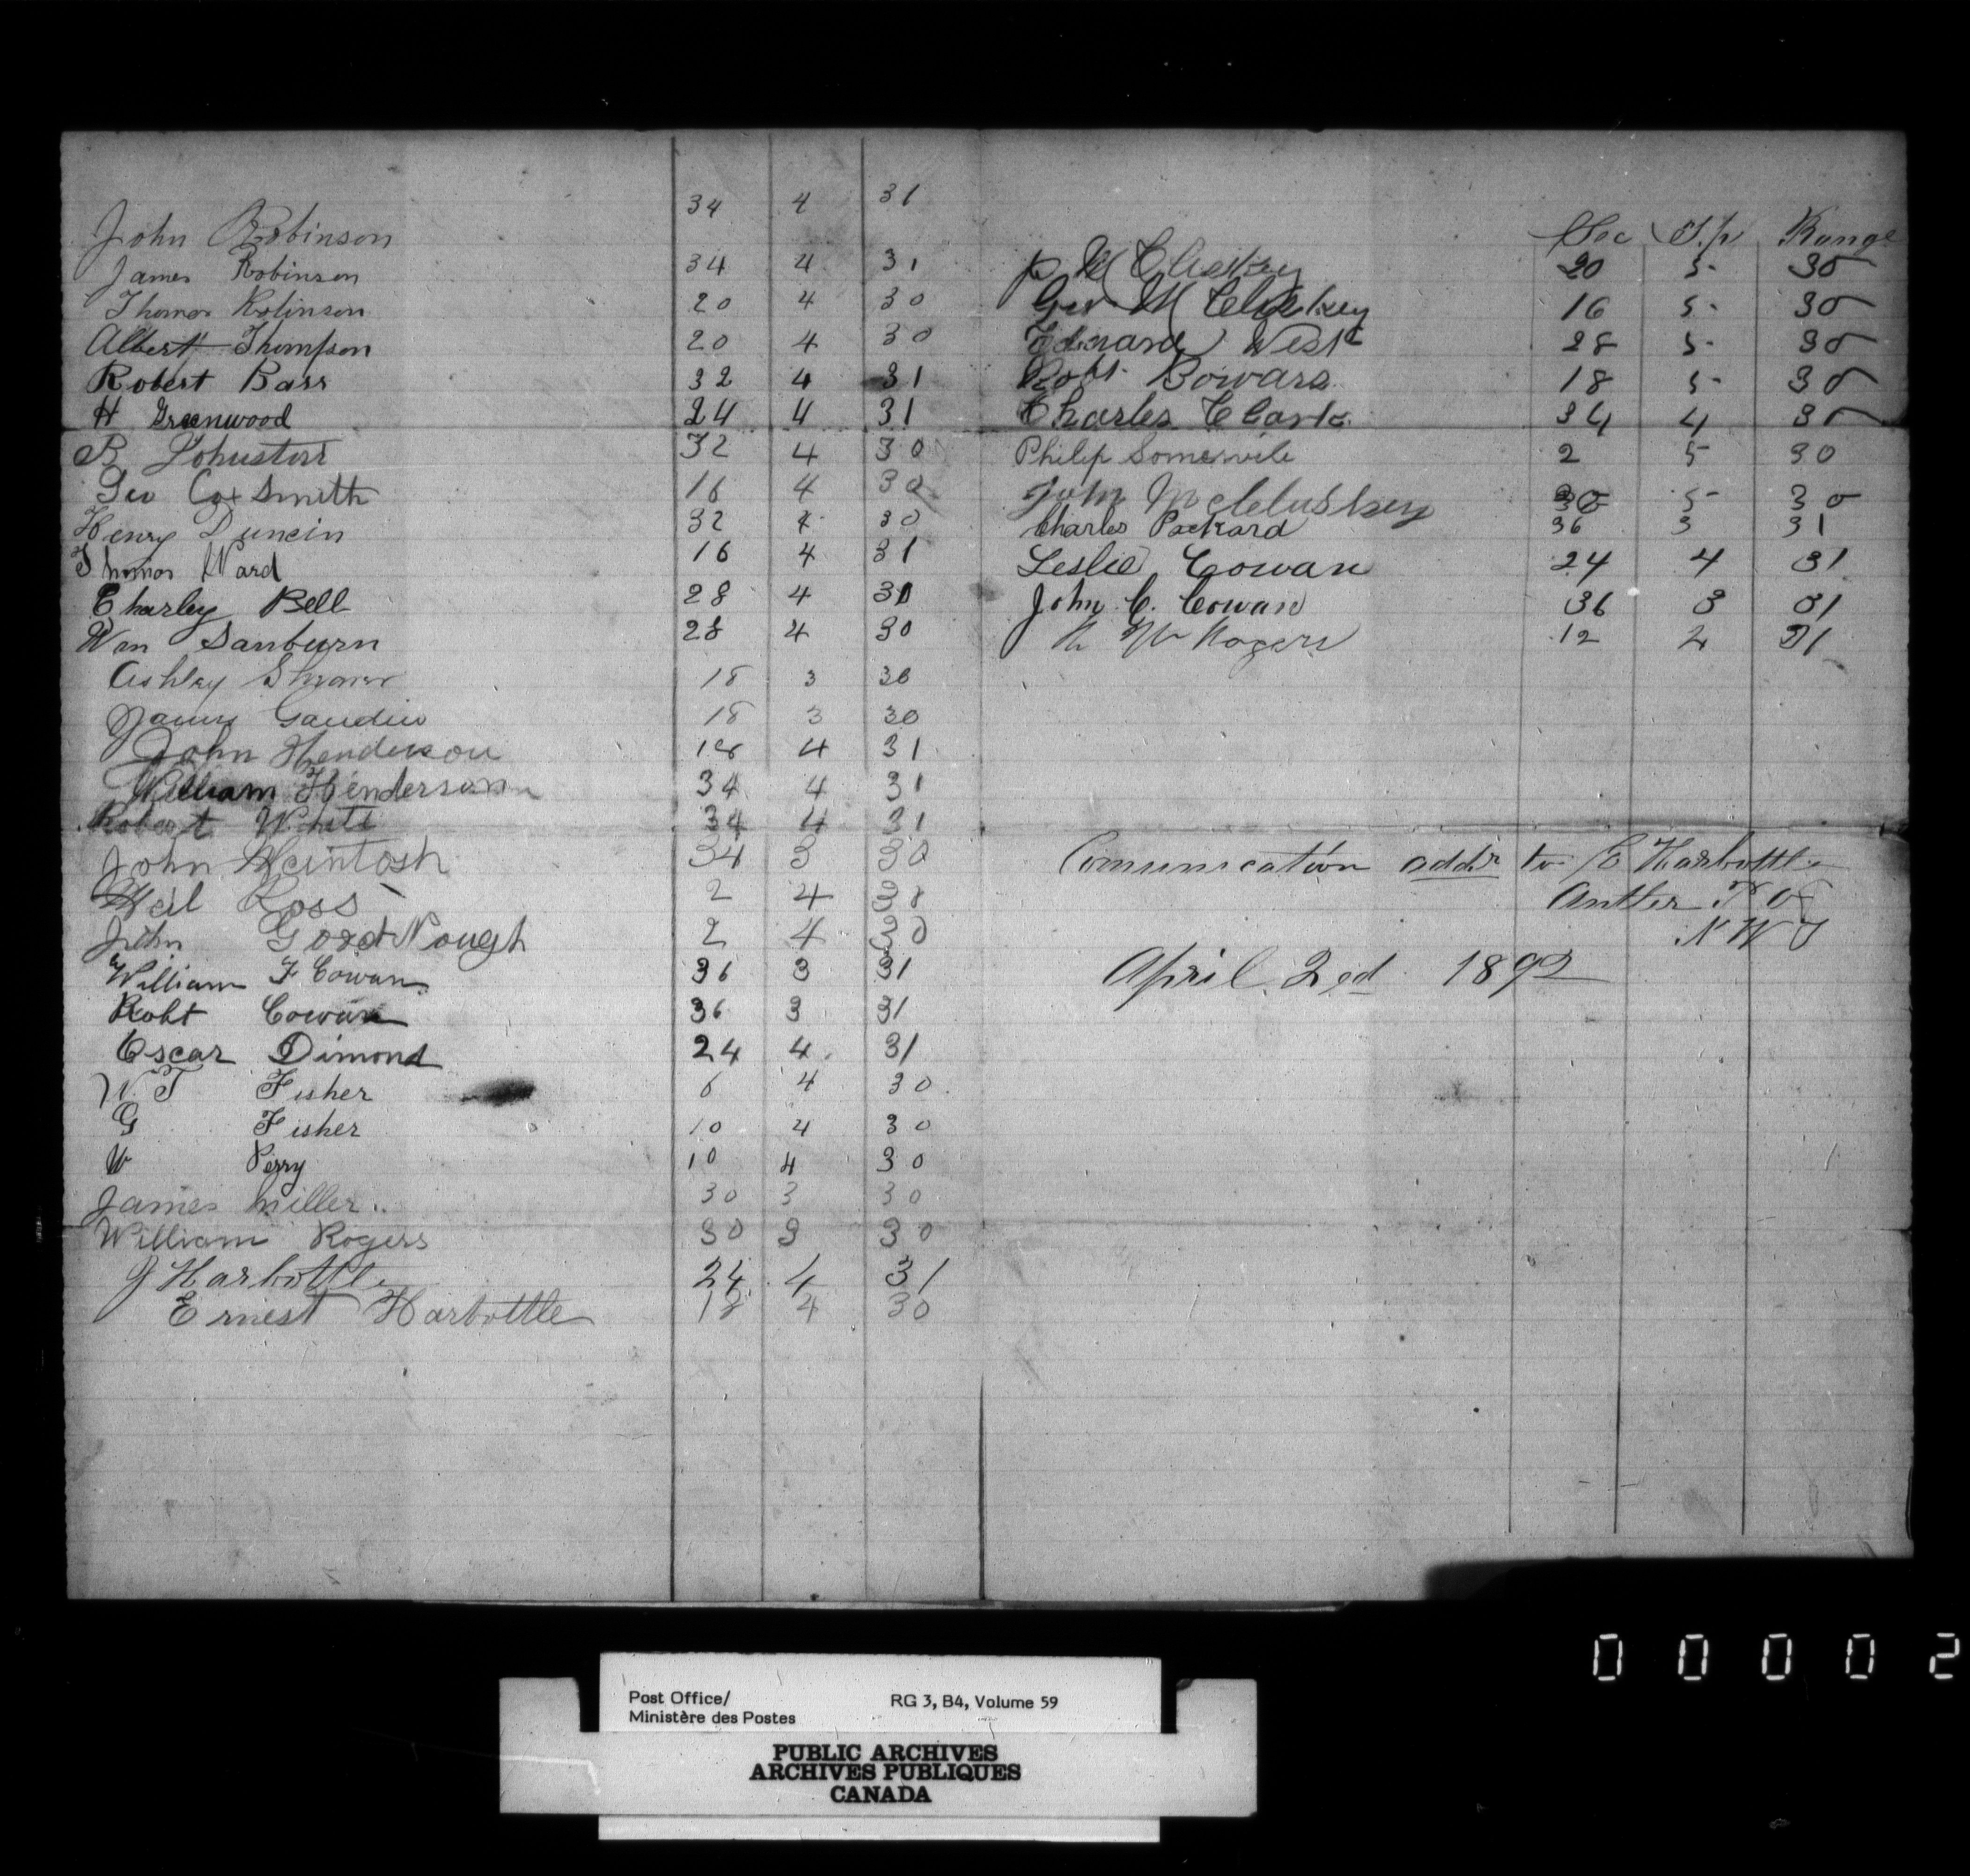 John Robinson 34 4 31
James Robinson 34 4 31
Thomas Robinson 20 4 30
Albert Thompson 20 4 30
Robert Bass 32 4 31
H Greenwood 24 4 31
B Johnston 32 4 30
Geo Cox Smith 16 4 30
Henry Duncin 32 4 30
Thomas Ward 16 4 31
Charley Bell 28 4 30
Wm Sanburn 28 4 30
Ashley 18 3 30
Gaudin 18 3 30
John Henderson 18 4 31
William Henderson 34 4 31
Robert White 34 4 31
John McIntosh 34 3 30
Neil Ross 2 4 
John 2 4 30
William F Cowan 36 3 31
Robt Cowan 36 3 31
Oscar Dimond 24 4 31
W. T Fisher 6 4 30
G Fisher 10 4 30
W Perry 10 4 30
James Miller 30 3 30
William Rogers 30 3 30
J Harbottle 24 4 31
Ernest Harbottle 18 4 30
Sec T.p Range
P McCluskey 20 5 30
Geo McCluskey 16 5 30
Edward West 28 5 30
Robt. Bowars 18 5 30
Charles Clark 34 4 30
Philip Somervile 2 5 30
John McCluskey 30 5 30
Charles Packard 36 3 31
Leslie Cowan 24 4 31
John C. Cowan 36 3 31
W Rogers 12 4 31
Comunication addr to E Harbottle
Antler P O
N W T
April 2nd 1892
00002
Post Office/ RG 3, B4, Volume 59
Ministère des Postes
PUBLIC ARCHIVES
ARCHIVES PUBLIQUES
CANADA